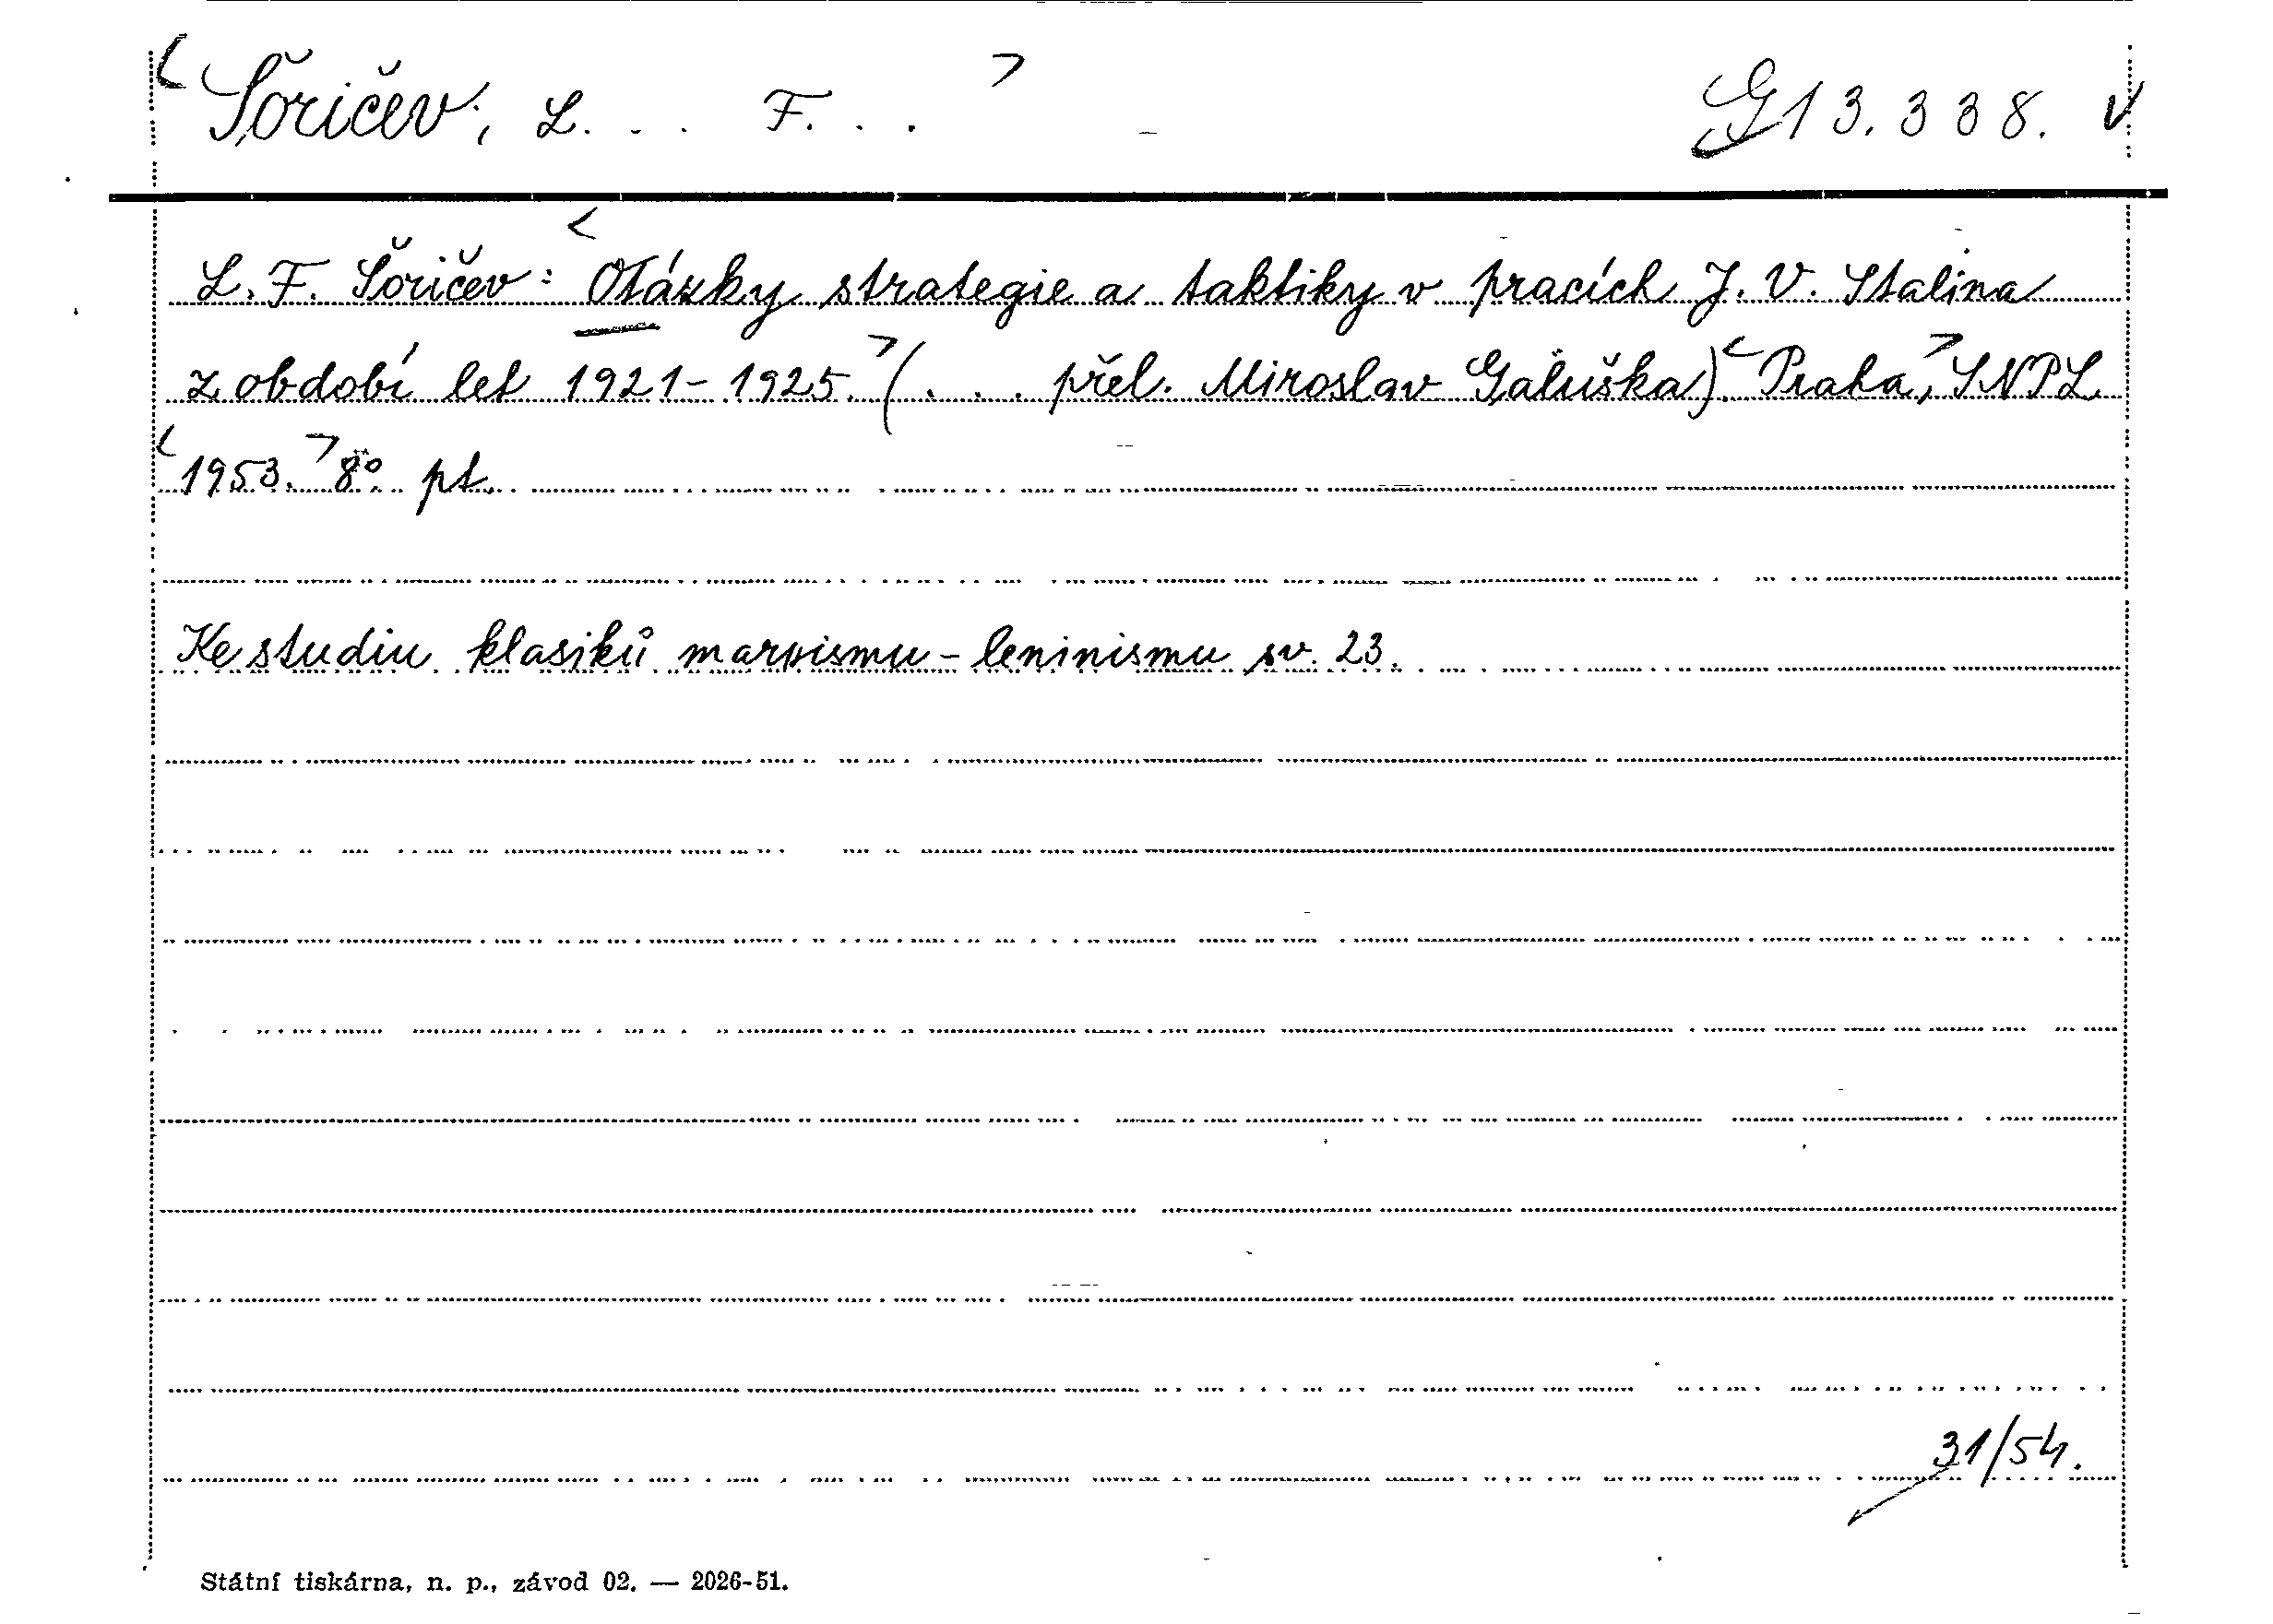 <Šoričev, L... F...> G 13.338. v
L. F. Šoričev: <Otázky strategie a taktiky v pracích J. V. Stalina
z období let 1921-1925.> (... přel. Miroslav Galuška). <Praha,> SNPL
<1953.> 8° pt.
Ke studiu klasiků marxismu-leninismu sv. 23.
31/54.
Státní tiskárna, n. p., závod 02. — 2026-51.